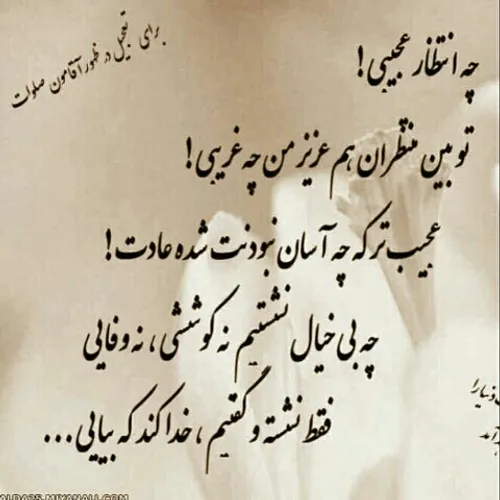 برای تعجیل در ظهور آقامون صلوات
چه انتظار عجیبی!
تو بین منتظران هم عزیز من چه غریبی!
عجیب تر که چه آسان نبودنت شده عادت!
چه بی خیال نشستیم نه کوششی، نه وفایی
فقط نشسته و گفتیم، خدا کند که بیایی...